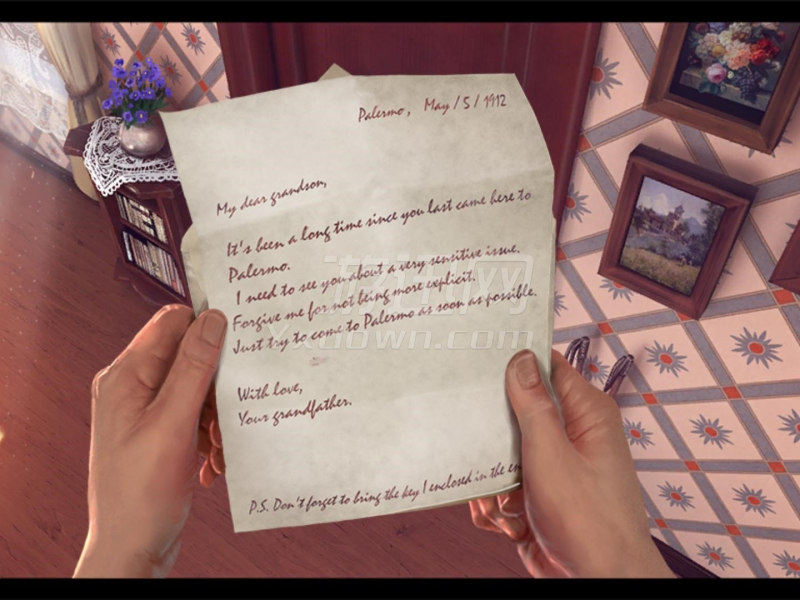 Palermo, May / 5 / 1912
My dear grandson,
It's been a long time since you last came here to
Palermo.
I need to see you about a very sensitive issue.
Forgive me for not being more explicit.
Just try to come to Palermo as soon as possible.
With love,
Your grandfather.
P.S. Don't forget to bring the key I enclosed in the en
游迅网
Yxdown.com